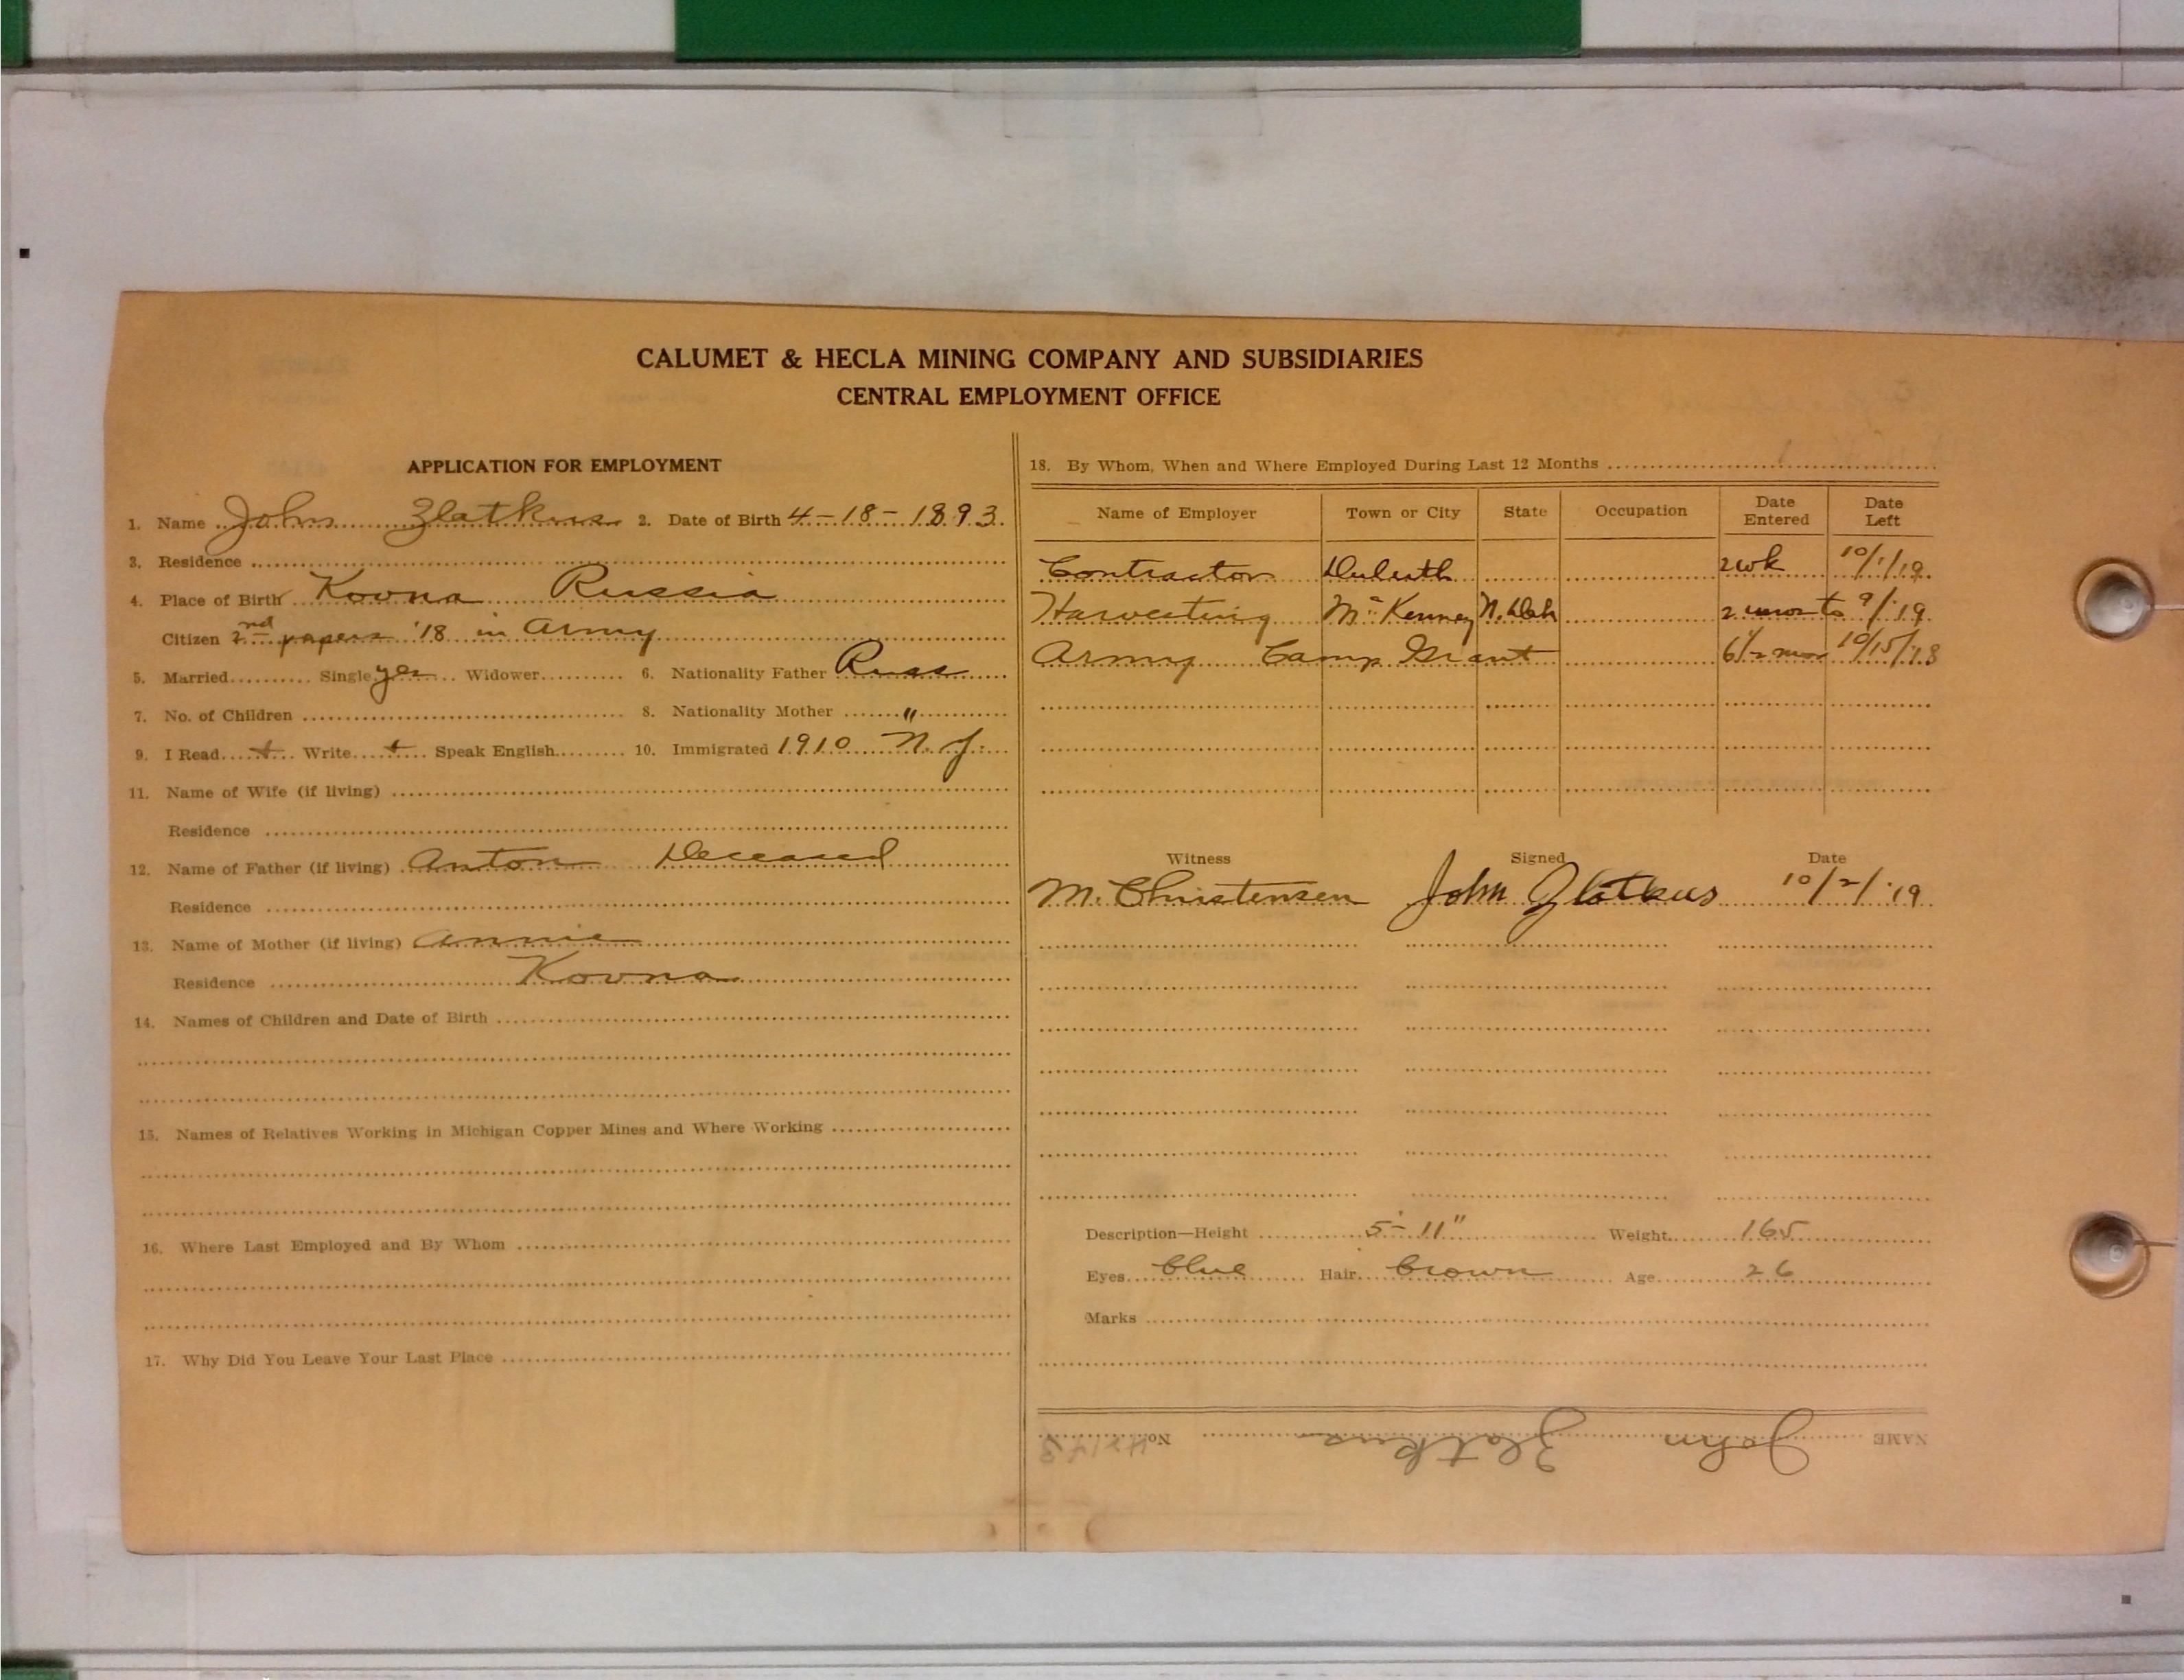 CALUMET & HECLA MINING COMPANY AND SUBSIDIARIES
CENTRAL EMPLOYMENT OFFICE
APPLICATION FOR EMPLOYMENT
1. Name John Zlatkus 2. Date of Birth 4-18-1893
3. Residence
4. Place of Birth Kovna Russia
Citizen 2nd papers '18 in Army
5. Married Single yes Widower 6. Nationality Father Russ
7. No. of Children 8. Nationality Mother "
9. I Read + Write + Speak English 10. Immigrated 1910 N.Y.
11. Name of Wife (if living)
Residence
12. Name of Father (if living) Anton Deceased
Residence
13. Name of Mother (if living) Annie
Residence Kovna
14. Names of Children and Date of Birth
15. Names of Relatives Working in Michigan Copper Mines and Where Working
16. Where Last Employed and By Whom
17. Why Did You Leave Your Last Place
18. By Whom, When and Where Employed During Last 12 Months
Name of Employer Town or City State Occupation Date Entered Date Left
Contractor Duluth 2 wk 10/1/19
Harvesting McKenney N. Dak 2 mos to 9/19
Army Camp Grant 6 1/2 mos 10/15/18
Witness Signed Date
M. Christensen John Zlatkus 10/2/'19
Description—Height 5'-11" Weight 165
Eyes blue Hair brown Age 26
Marks
NAME John Zlatkus No.